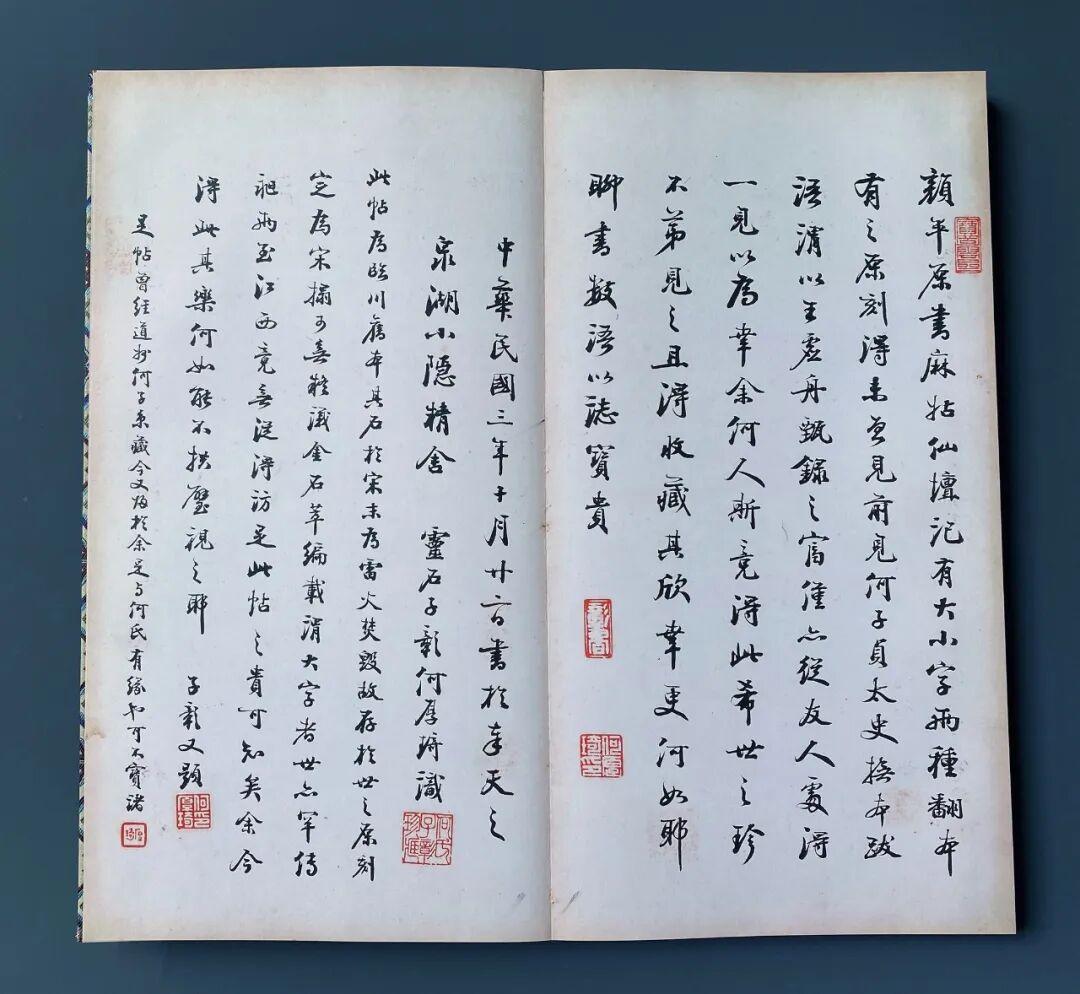 顏平原書麻姑仙壇記有大小字兩種翻本
有之原刻得未曾見前見何子貞太史撫本跋
語謂以王虛舟甄錄之富僅亦從友人處得
一見以為幸余何人斯竟得此希世之珍
不第見之且得收藏其欣幸更何如耶
聊書數語以誌寶貴
中華民國三年十月廿六日書於奉天之
泉湖小隱精舍 靈石子彰何厚琦識
此帖為臨川舊本其石於宋末為雷火焚毀故存於世之原刻
定為宋搨可無疑議金石萃編載謂大字者世亦罕傳
祖兩至江西竟無從得訪是此帖之貴可知矣余今
得此其樂何如能不拱璧視之耶 子彰又題
是帖曾經道州何子貞藏今又歸於余是與何氏有緣也可不寶諸
何厚琦印
何氏子彰珍藏
何厚琦印